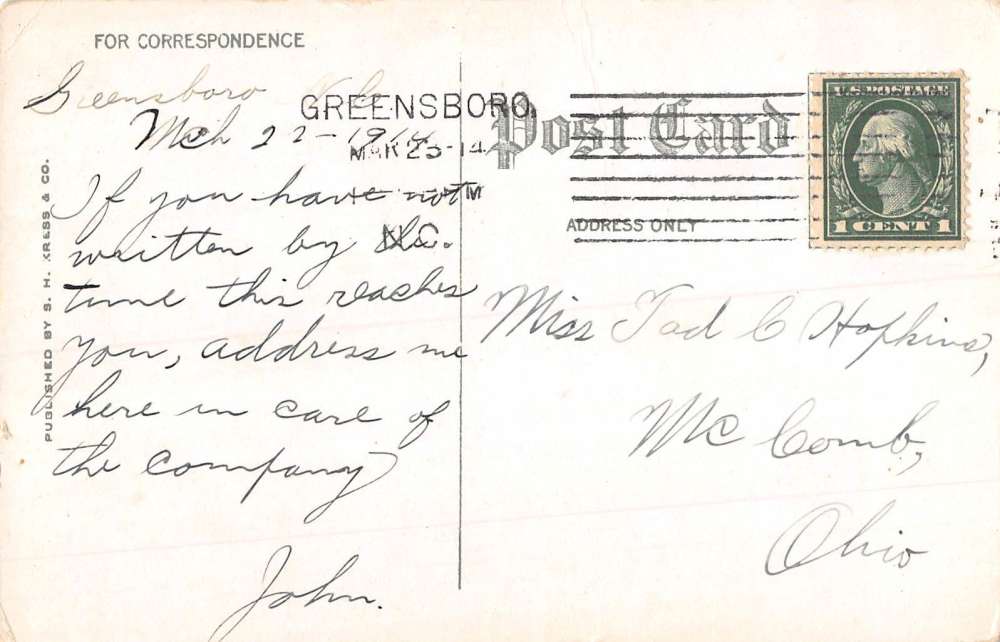 FOR CORRESPONDENCE
Greensboro N.C.
Mch 22-1914
If you have not
written by the
time this reaches
you, address me
here in care of
the company
John.
PUBLISHED BY S. H. KRESS & CO.
GREENSBORO,
MAR 23-14
M
N.C.
Post Card
ADDRESS ONLY
U.S. POSTAGE
1 CENT 1
Miss Tad C Hopkins,
Mc Comb,
Ohio